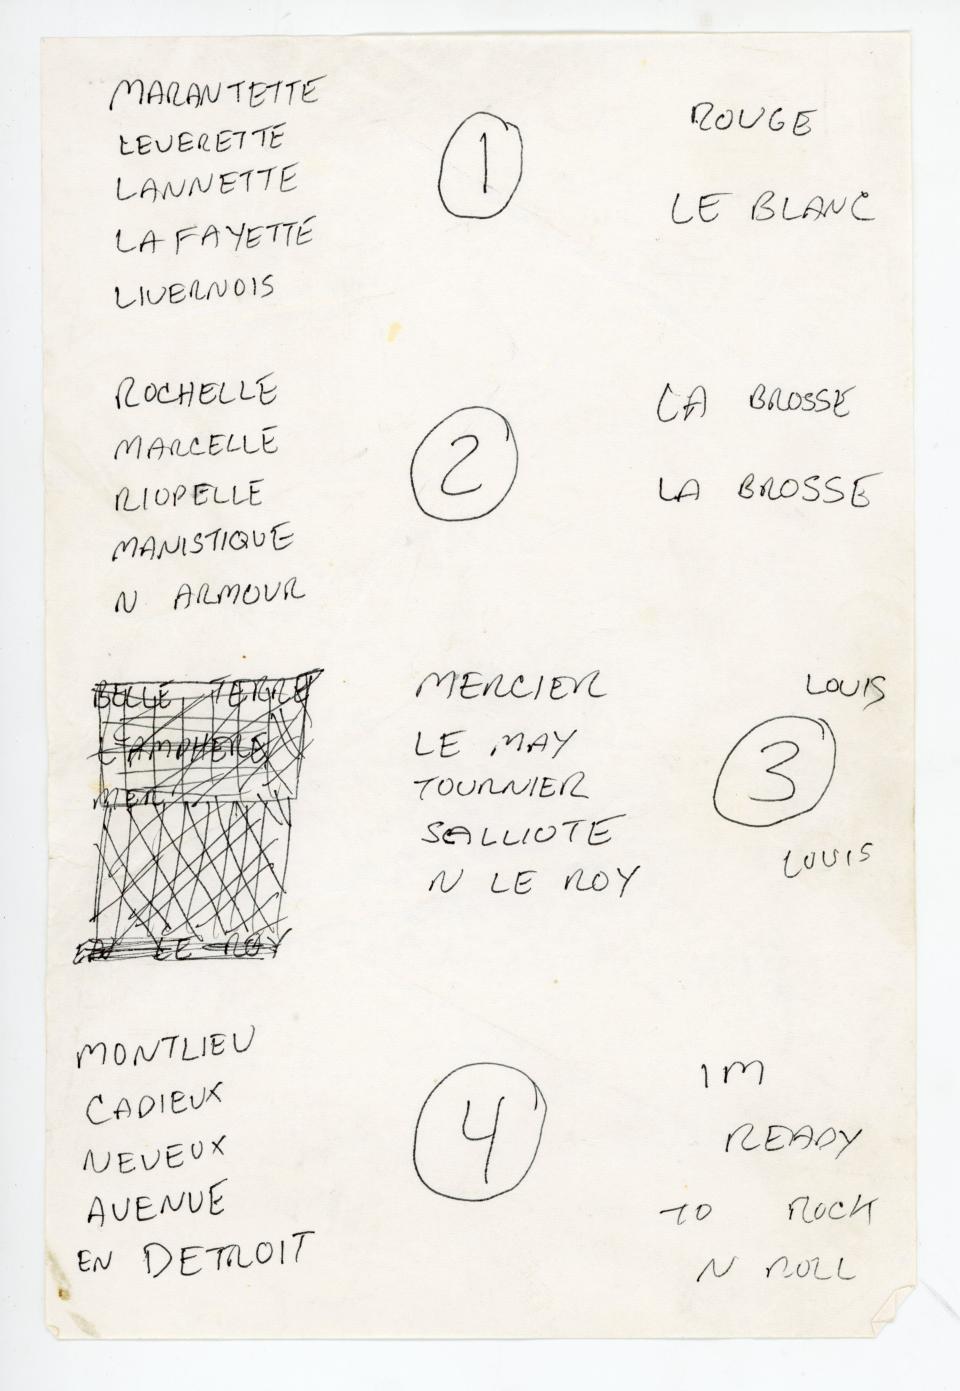 MARANTETTE
LEVERETTE
LANNETTE
LAFAYETTE
LIVERNOIS
1
ROUGE
LE BLANC
ROCHELLE
MARCELLE
RIOPELLE
MANISTIQUE
N ARMOUR
2
LA BROSSE
LA BROSSE
BELLE TERRE
MER
LE ROY
MERCIER
LE MAY
TOURNIER
SALLIOTE
N LE ROY
LOUIS
3
LOUIS
MONTLIEU
CADIEUX
NEVEUX
AVENUE
EN DETROIT
4
IM
READY
TO ROCK
N ROLL